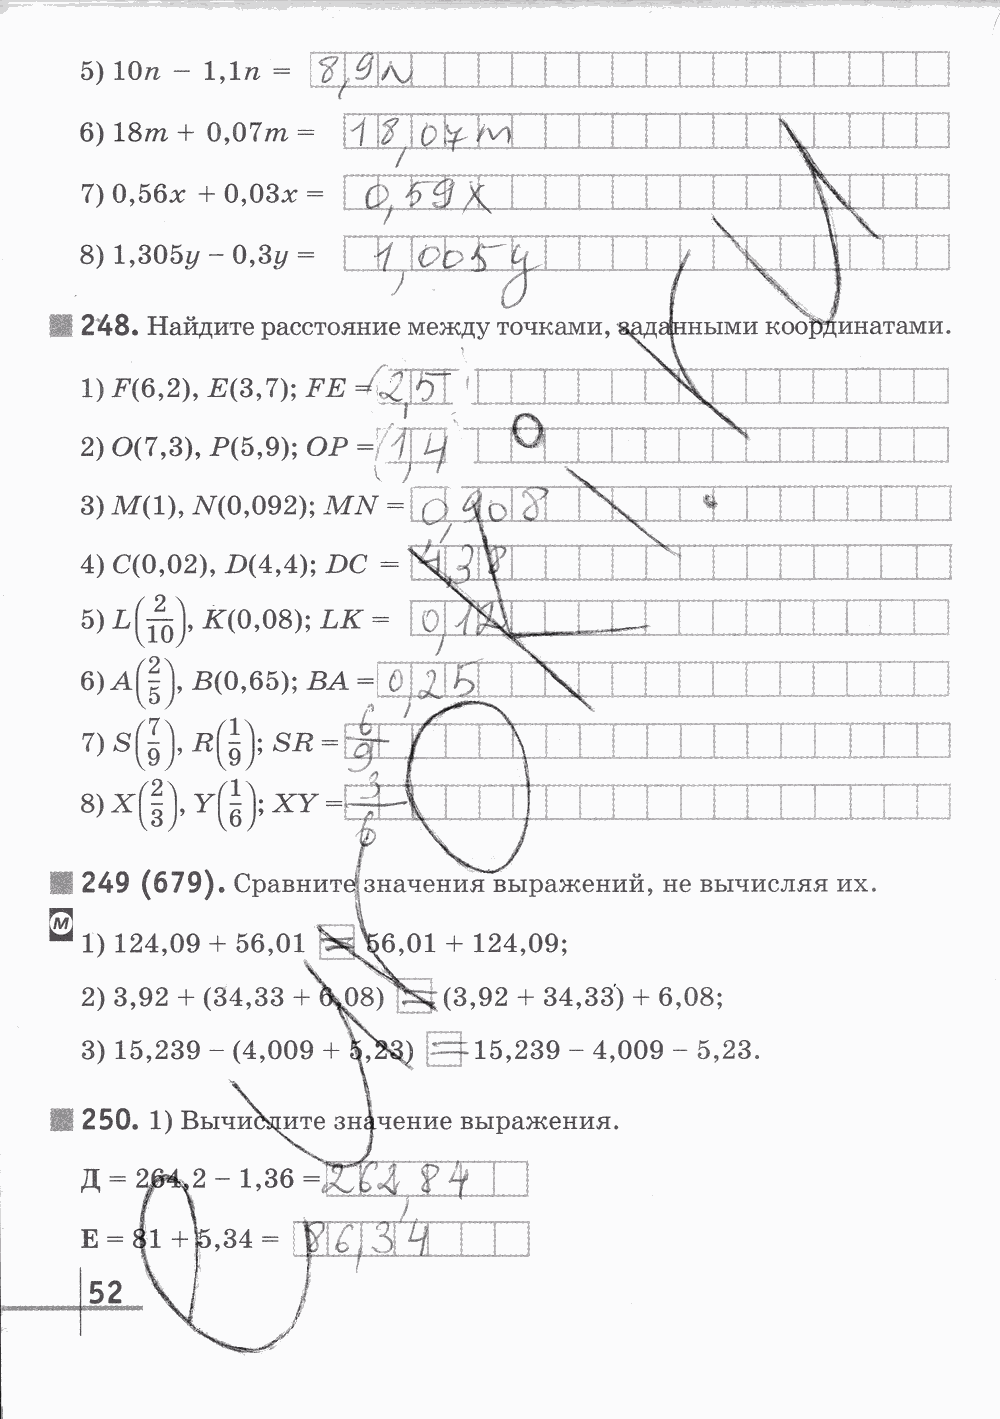 5) 10n − 1,1n = 8,9n
6) 18m + 0,07m = 18,07m
7) 0,56x + 0,03x = 0,59x
8) 1,305y − 0,3y = 1,005y
248. Найдите расстояние между точками, заданными координатами.
1) F(6,2), E(3,7); FE = 2,5
2) O(7,3), P(5,9); OP = 1,4
3) M(1), N(0,092); MN = 0,908
4) C(0,02), D(4,4); DC = 4,38
5) L(2/10), K(0,08); LK = 0,12
6) A(2/5), B(0,65); BA = 0,25
7) S(7/9), R(1/9); SR = 6/9
8) X(2/3), Y(1/6); XY = 3/6
249 (679). Сравните значения выражений, не вычисляя их.
М
1) 124,09 + 56,01 = 56,01 + 124,09;
2) 3,92 + (34,33 + 6,08) = (3,92 + 34,33) + 6,08;
3) 15,239 − (4,009 + 5,23) = 15,239 − 4,009 − 5,23.
250. 1) Вычислите значение выражения.
Д = 264,2 − 1,36 = 262,84
Е = 81 + 5,34 = 86,34
52